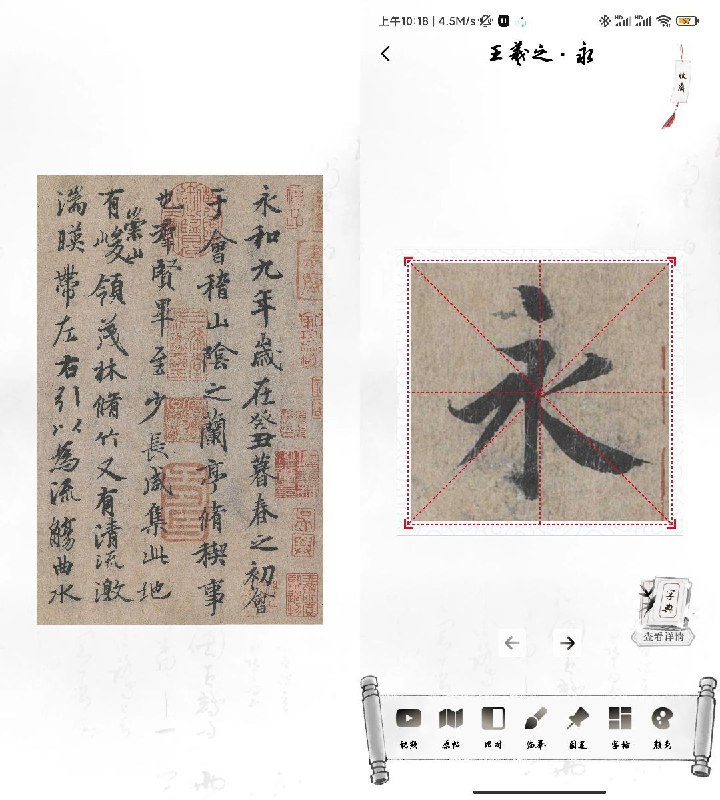 永和九年歲在癸丑暮春之初會
于會稽山陰之蘭亭脩稧事
也羣賢畢至少長咸集此地
有崇山峻領茂林脩竹又有清流激
湍暎帶左右引以為流觴曲水
上午10:18 | 4.5M/s
57
王羲之·永
收藏
永
字典
查看详情
视频 原帖 临摹 图层 字帖 颜色